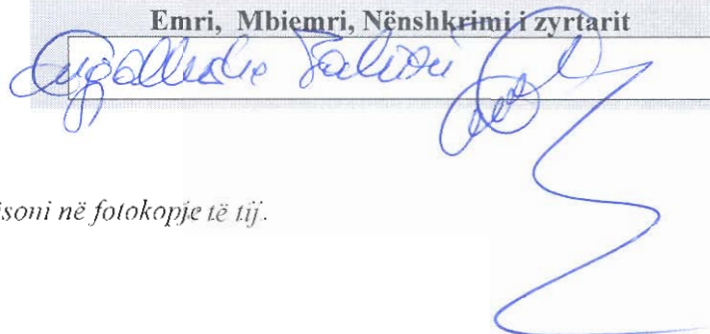 Emri, Mbiemri, Nënshkrimi i zyrtarit
soni në fotokopje të tij.